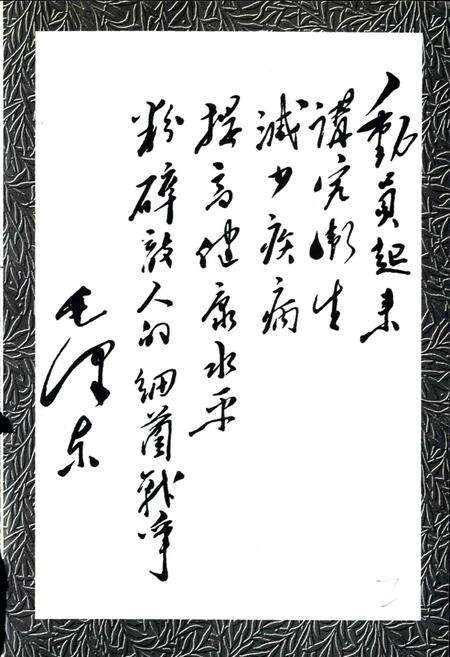 動員起来
講究衛生
減少疾病
提高健康水平
粉碎敵人的細菌戰爭
毛澤东